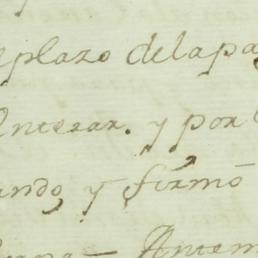 plazo dela pa
enterar. y por
ando, y firmó
Antem